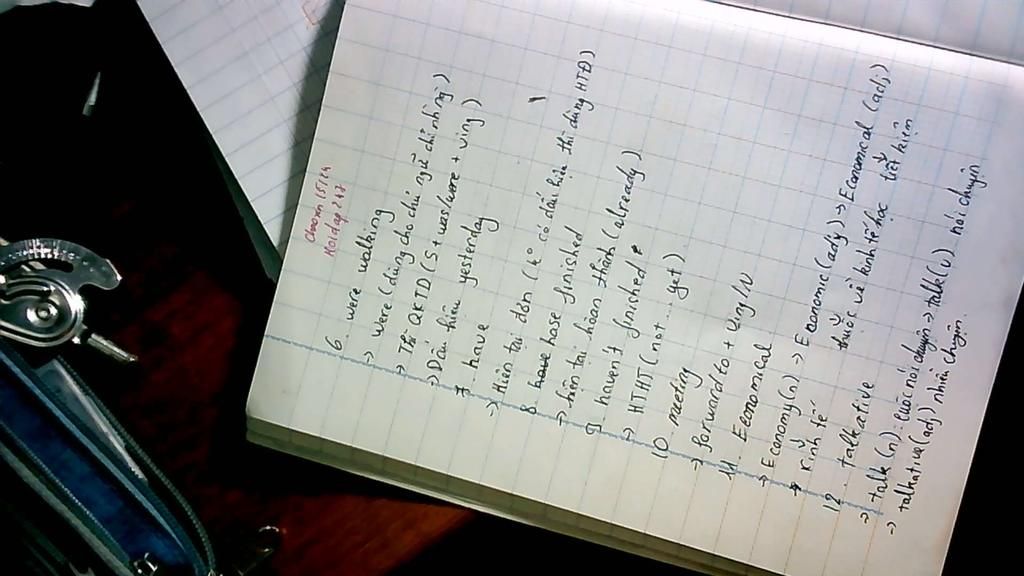 6 were walking
→ were (dùng cho chủ ngữ chỉ những)
→ Thì QKTD (S + was/were + Ving)
→ Dấu hiệu yesterday
7 have
→ Hiện tại đơn (k° có dấu hiệu thì dùng HTĐ)
8 have finished
→ hiện tại hoàn thành (already)
9 haven't finished
→ HTHT (not ... yet)
10 meeting
→ forward to + Ving/N
11 Economical
→ Economy (n) → Economic (adj) → Economical (adj)
kinh tế thuộc về kinh tế học tiết kiệm
12 talkative
→ talk (n): cuộc nói chuyện → talk (v) nói chuyện
→ talkative (adj) nhiều chuyện